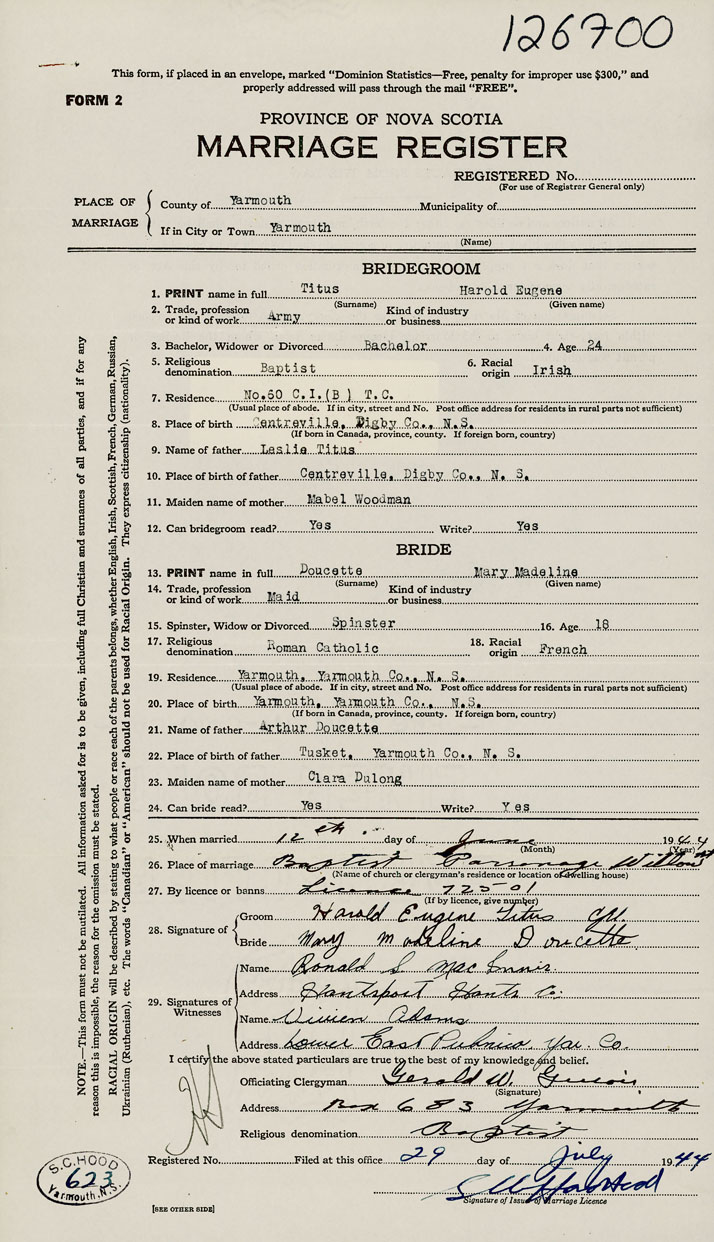 126700
This form, if placed in an envelope, marked "Dominion Statistics—Free, penalty for improper use $300," and
properly addressed will pass through the mail "FREE".
FORM 2
PROVINCE OF NOVA SCOTIA
MARRIAGE REGISTER
REGISTERED No.
(For use of Registrar General only)
PLACE OF MARRIAGE
County of Yarmouth Municipality of
If in City or Town Yarmouth
(Name)
BRIDEGROOM
1. PRINT name in full Titus Harold Eugene
(Surname) (Given name)
2. Trade, profession or kind of work Army Kind of industry or business
3. Bachelor, Widower or Divorced Bachelor 4. Age 24
5. Religious denomination Baptist 6. Racial origin Irish
7. Residence No.60 C.I.(B) T.C.
(Usual place of abode. If in city, street and No. Post office address for residents in rural parts not sufficient)
8. Place of birth Centreville, Digby Co., N.S.
(If born in Canada, province, county. If foreign born, country)
9. Name of father Leslie Titus
10. Place of birth of father Centreville, Digby Co., N. S.
11. Maiden name of mother Mabel Woodman
12. Can bridegroom read? Yes Write? Yes
BRIDE
13. PRINT name in full Doucette Mary Madeline
(Surname) (Given name)
14. Trade, profession or kind of work Maid Kind of industry or business
15. Spinster, Widow or Divorced Spinster 16. Age 18
17. Religious denomination Roman Catholic 18. Racial origin French
19. Residence Yarmouth, Yarmouth Co., N. S.
(Usual place of abode. If in city, street and No. Post office address for residents in rural parts not sufficient)
20. Place of birth Yarmouth, Yarmouth Co., N.S.
(If born in Canada, province, county. If foreign born, country)
21. Name of father Arthur Doucette
22. Place of birth of father Tusket, Yarmouth Co., N. S.
23. Maiden name of mother Clara Dulong
24. Can bride read? Yes Write? Yes
25. When married 12th day of June 1944
(Month) (Year)
26. Place of marriage Baptist Parsonage
(Name of church or clergyman's residence or location of dwelling house)
27. By licence or banns Licence 72501
(If by licence, give number)
28. Signature of
Groom Harold Eugene Titus
Bride Mary Madeline Doucette
29. Signatures of Witnesses
Name Ronald S MacInnis
Address Hantsport Hants Co.
Name Vivien Adams
Address Lower East Pubnico Yar. Co.
I certify the above stated particulars are true to the best of my knowledge and belief.
Officiating Clergyman Gerald W.
(Signature)
Address Box 683 Yarmouth
Religious denomination Baptist
Registered No. Filed at this office 29 day of July 1944
Signature of Issuer of Marriage Licence
[SEE OTHER SIDE]
S.C. HOOD
623
Yarmouth, N.S.
NOTE.—This form must not be mutilated. All information asked for is to be given, including full Christian and surnames of all parties, and if for any
reason this is impossible, the reason for the omission must be stated.
RACIAL ORIGIN will be described by stating to what people or race each of the parents belongs, whether English, Irish, Scottish, French, German, Russian,
Ukrainian (Ruthenian), etc. The words "Canadian" or "American" should not be used for Racial Origin. They express citizenship (nationality).